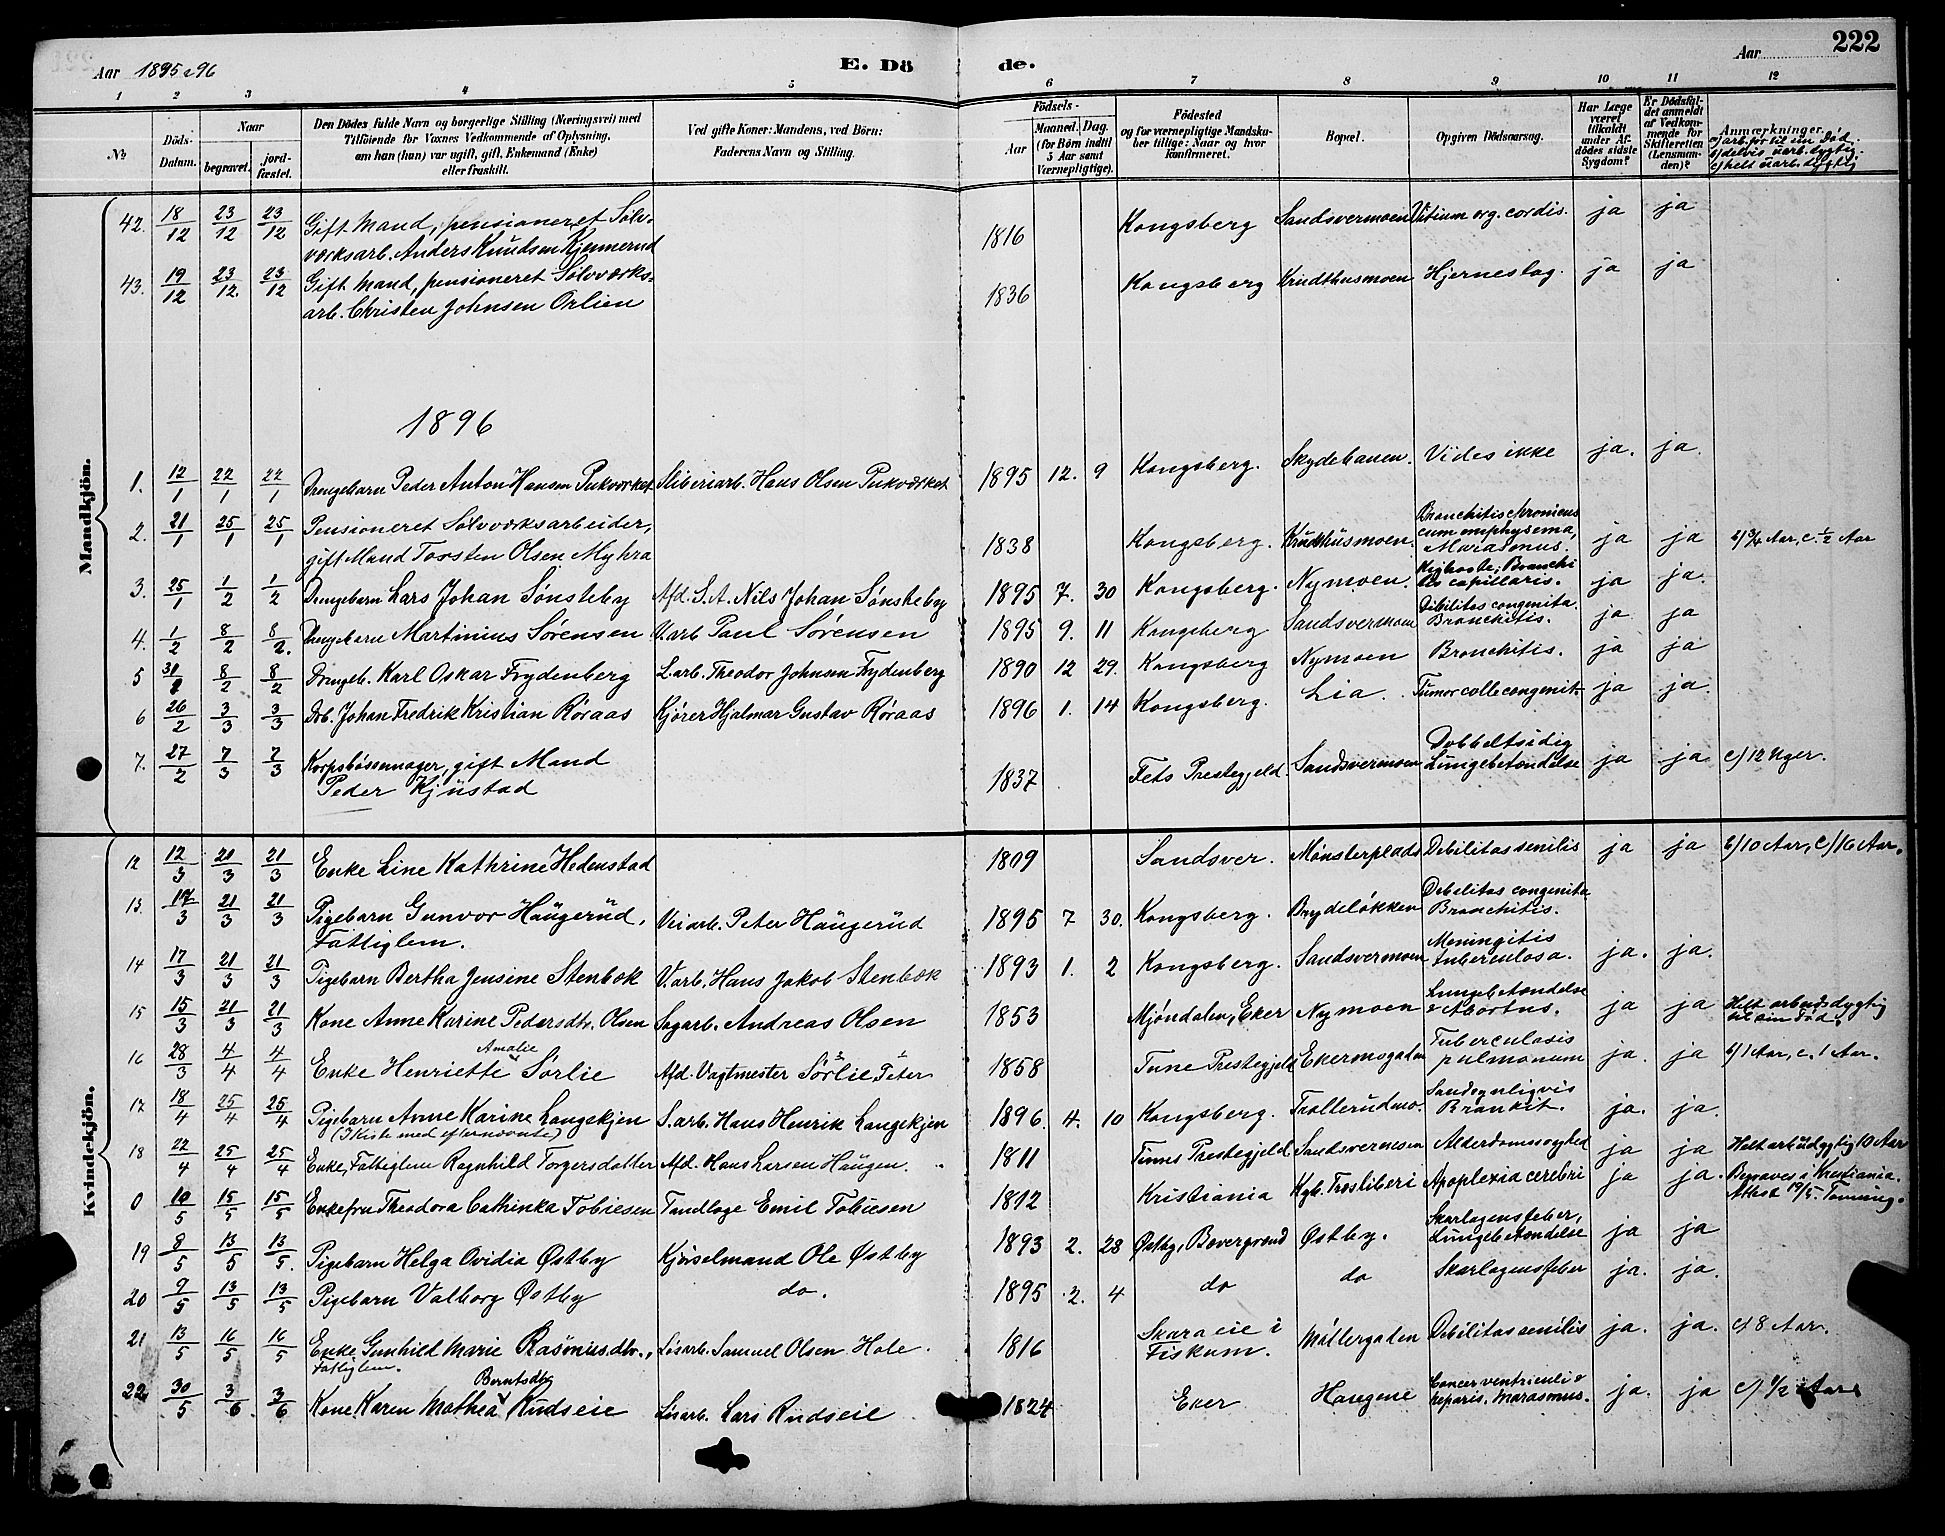 222
Aar 1895 & 96 E. Dö de. Aar
1 2 3 4 5 6 7 8 9 10 11 12
No Döds-Datum. Naar begravet. jordfæstet. Den Dödes fulde Navn og borgerlige Stilling (Næringsvei) med Tilföiende for Voxnes Vedkommende af Oplysning, om han (hun) var ugift, gift, Enkemand (Enke) eller fraskilt. Ved gifte Koner: Mandens, ved Börn: Faderens Navn og Stilling. Födsels- Aar Maaned. Dag. (for Börn indtil 5 Aar samt Værnepligtige). Födested og for værnepligtige Mandskaber tillige: Naar og hvor konfirmeret. Bopæl. Opgiven Dödsaarsag. Har Læge været tilkaldt under Afdödes sidste Sygdom? Er Dödsfaldet anmeldt af Vedkommende for Skifteretten (Lensmanden)? Anmærkninger.
a) arb.før til sin Død.
b) delvis uarb.dygtig.
c) helt uarb.dygtig
Mandkjön.
42. 18/12 23/12 23/12 Gift Mand, pensioneret Sølv- 1816 Kongsberg Sandsvermoen Vitium org. cordis. ja ja
værksarb. Anders Knudsen Kjennerud
43. 19/12 23/12. 23/12 Gift Mand, pensioneret Sølvværks- 1836 Kongsberg Krudthusmoen Hjerneslag. ja ja
arb. Christen Johnsen Orlien
1896
1. 12/1 22/1 22/1 Drengebarn Peder Anton Hansen Pukværket Stiberiarb. Hans Olsen Pukværket 1895 12. 9 Kongsberg. Skydebanen. Vides ikke ja. ja.
2. 21/1 25/1 25/1 Pensioneret Sølvværksarbeider, 1838 Kongsberg. Krudthusmoen. Bronchitis chronicus cum emphysema, Marasmus. ja ja b) 3/4 Aar, c. 1/2 Aar
gift Mand Torsten Olsen Myhra
3. 25/1 1/2 1/2 Drengebarn Lars Johan Sønsteby Afd. S.A. Nils Johan Sønsteby 1895 7. 30 Kongsberg. Nymoen. Kighoste, Bronchitis capillaris. ja ja.
4. 1/2 8/2 8/2. Drengebarn Martinius Sørensen V.arb. Paul Sørensen 1895 9. 11 Kongsberg Sandsvermoen Debilitas congenita. Bronchitis. ja ja
5 31/1 8/2 8/2 Drengeb. Karl Oskar Frydenberg L.arb. Theodor Johnsen Frydenberg 1890 12 29. Kongsberg Nymoen Bronchitis. ja ja
6 26/2 3/3 3/3 Drb. Johan Fredrik Kristian Røraas Kjører Hjalmar Gustav Røraas 1896 1. 14 Kongsberg. Lia. Tumor colli congenit. ja ja.
7. 27/2 7/3 7/3 Korpsbøssemager, gift Mand 1837 Fets Prestegjeld. Sandsvermoen Dobbeltsidig Lungebetændelse ja ja c) 12 Uger.
Peder Kjustad
Kvindekjön.
12 12/3 21/3 21/3 Enke Line Kathrine Hedenstad 1809 Sandsver. Mønsterplads Debilitas senilis ja ja b) 10 Aar, c) 16 Aar.
13. 17/3 21/3 21/3 Pigebarn Gunvor Haugerud, Veiarb. Peter Haugerud 1895 7 30. Kongsberg. Brydeløkken Debilitas congenita Bronchitis.
Fattiglem.
14 17/3 21/3 21/3 Pigebarn Bertha Jensine Stenbæk V.arb. Hans Jakob Stenbæk 1893 1. 2 Kongsberg. Sandsvermoen Meningitis tuberculosa. ja. ja.
15 15/3 21/3 21/3 Kone Anne Karine Pedersdtr. Olsen Sagarb. Andreas Olsen 1853 Mjøndalen, Eker Nymoen Lungebetændelse & Abortus. ja ja Helt arbeidsdygtig til sin Død.
16 28/3 4/4 4/4 Enke Henriette Amalie Sørlie Afd. Vagtmester Sørlie Peter 1858 Tune Prestegjeld Ekermogaden Tuberculosis pulmonum ja. ja b) 1 Aar, c. 1 Aar.
17 18/4 25/4 25/4 Pigebarn Anne Karine Langekjen S.arb. Hans Henrik Langekjen 1896. 4. 10 Kongsberg. Traaterudmo. Sandsynligvis Bronkit. ja. ja.
(I kiste med efternævnte)
18 22/4 25/4 25/4 Enke, Fattiglem Ragnhild Torgersdatter Afd. Hans Larsen Haugen. 1811 Tinns Prestegjeld Sandsvermoen Alderdomssvaghed ja ja Helt arbudygtig 10 Aar
0 10/5 15/5 15/5 Enkefru Theodora Cathinka Tobiesen Tandlæge Emil Tobiesen 1812 Kristiania Kgb. Træsliberi Apoplexia cerebri ja ja. Begraves i Kristiania. Attest 19/5.
19 8/5 13/5 13/5. Pigebarn Helga Ovidia Østby Kjørselmand Ole Østby 1893 2. 28 Østby, Bævergrænd Østby. Skarlagensfeber, Lungebetændelse ja ja
20 9/5 13/5 13/5 Pigebarn Valborg Østby do. 1895 2. 4 do do Skarlagensfeber ja. ja.
21 13/5 16/5 16/5 Enke Gunhild Marie Rasmusdtr., Løsarb. Samuel Olsen Hole. 1816 Skara eie i Fiskum. Møllergaden Debilitas senilis ja. ja. c) 8 Aar.
Fattiglem.
22. 30/5 3/6 3/6 Kone Karen Mathea Berntsdtr. Rudseie Løsarb. Lars Rudseie 1824 Eker Haugene Cancer ventriculi & heparis. Marasmus. ja. ja c) 1/2 Aar.